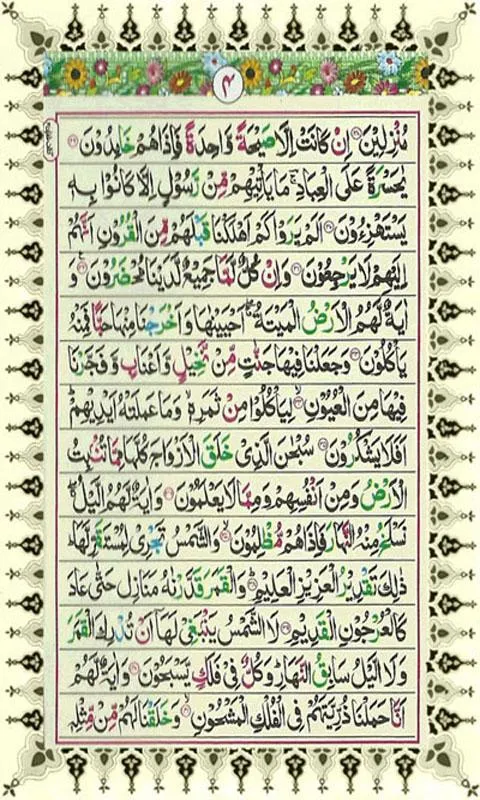 ۴
مُنْزِلِيْنَ ۝۲۸ اِنْ كَانَتْ اِلَّا صَيْحَةً وَّاحِدَةً فَاِذَا هُمْ خَامِدُوْنَ ۝۲۹
يٰحَسْرَةً عَلَى الْعِبَادِ ۚ مَا يَاْتِيْهِمْ مِّنْ رَّسُوْلٍ اِلَّا كَانُوْا بِهٖ
يَسْتَهْزِءُوْنَ ۝۳۰ اَلَمْ يَرَوْا كَمْ اَهْلَكْنَا قَبْلَهُمْ مِّنَ الْقُرُوْنِ اَنَّهُمْ
اِلَيْهِمْ لَا يَرْجِعُوْنَ ۝۳۱ وَاِنْ كُلٌّ لَّمَّا جَمِيْعٌ لَّدَيْنَا مُحْضَرُوْنَ ۝۳۲ وَ
اٰيَةٌ لَّهُمُ الْاَرْضُ الْمَيْتَةُ ۚ اَحْيَيْنٰهَا وَاَخْرَجْنَا مِنْهَا حَبًّا فَمِنْهُ
يَاْكُلُوْنَ ۝۳۳ وَجَعَلْنَا فِيْهَا جَنّٰتٍ مِّنْ نَّخِيْلٍ وَّاَعْنَابٍ وَّفَجَّرْنَا
فِيْهَا مِنَ الْعُيُوْنِ ۝۳۴ لِيَاْكُلُوْا مِنْ ثَمَرِهٖ ۙ وَمَا عَمِلَتْهُ اَيْدِيْهِمْ ؕ
اَفَلَا يَشْكُرُوْنَ ۝۳۵ سُبْحٰنَ الَّذِيْ خَلَقَ الْاَزْوَاجَ كُلَّهَا مِمَّا تُنْۢبِتُ
الْاَرْضُ وَمِنْ اَنْفُسِهِمْ وَمِمَّا لَا يَعْلَمُوْنَ ۝۳۶ وَاٰيَةٌ لَّهُمُ الَّيْلُ ۖۚ
نَسْلَخُ مِنْهُ النَّهَارَ فَاِذَا هُمْ مُّظْلِمُوْنَ ۝۳۷ وَالشَّمْسُ تَجْرِيْ لِمُسْتَقَرٍّ لَّهَا ؕ
ذٰلِكَ تَقْدِيْرُ الْعَزِيْزِ الْعَلِيْمِ ۝۳۸ وَالْقَمَرَ قَدَّرْنٰهُ مَنَازِلَ حَتّٰى عَادَ
كَالْعُرْجُوْنِ الْقَدِيْمِ ۝۳۹ لَا الشَّمْسُ يَنْۢبَغِيْ لَهَاۤ اَنْ تُدْرِكَ الْقَمَرَ
وَلَا الَّيْلُ سَابِقُ النَّهَارِ ؕ وَكُلٌّ فِيْ فَلَكٍ يَّسْبَحُوْنَ ۝۴۰ وَاٰيَةٌ لَّهُمْ
اَنَّا حَمَلْنَا ذُرِّيَّتَهُمْ فِي الْفُلْكِ الْمَشْحُوْنِ ۝۴۱ وَخَلَقْنَا لَهُمْ مِّنْ مِّثْلِهٖ